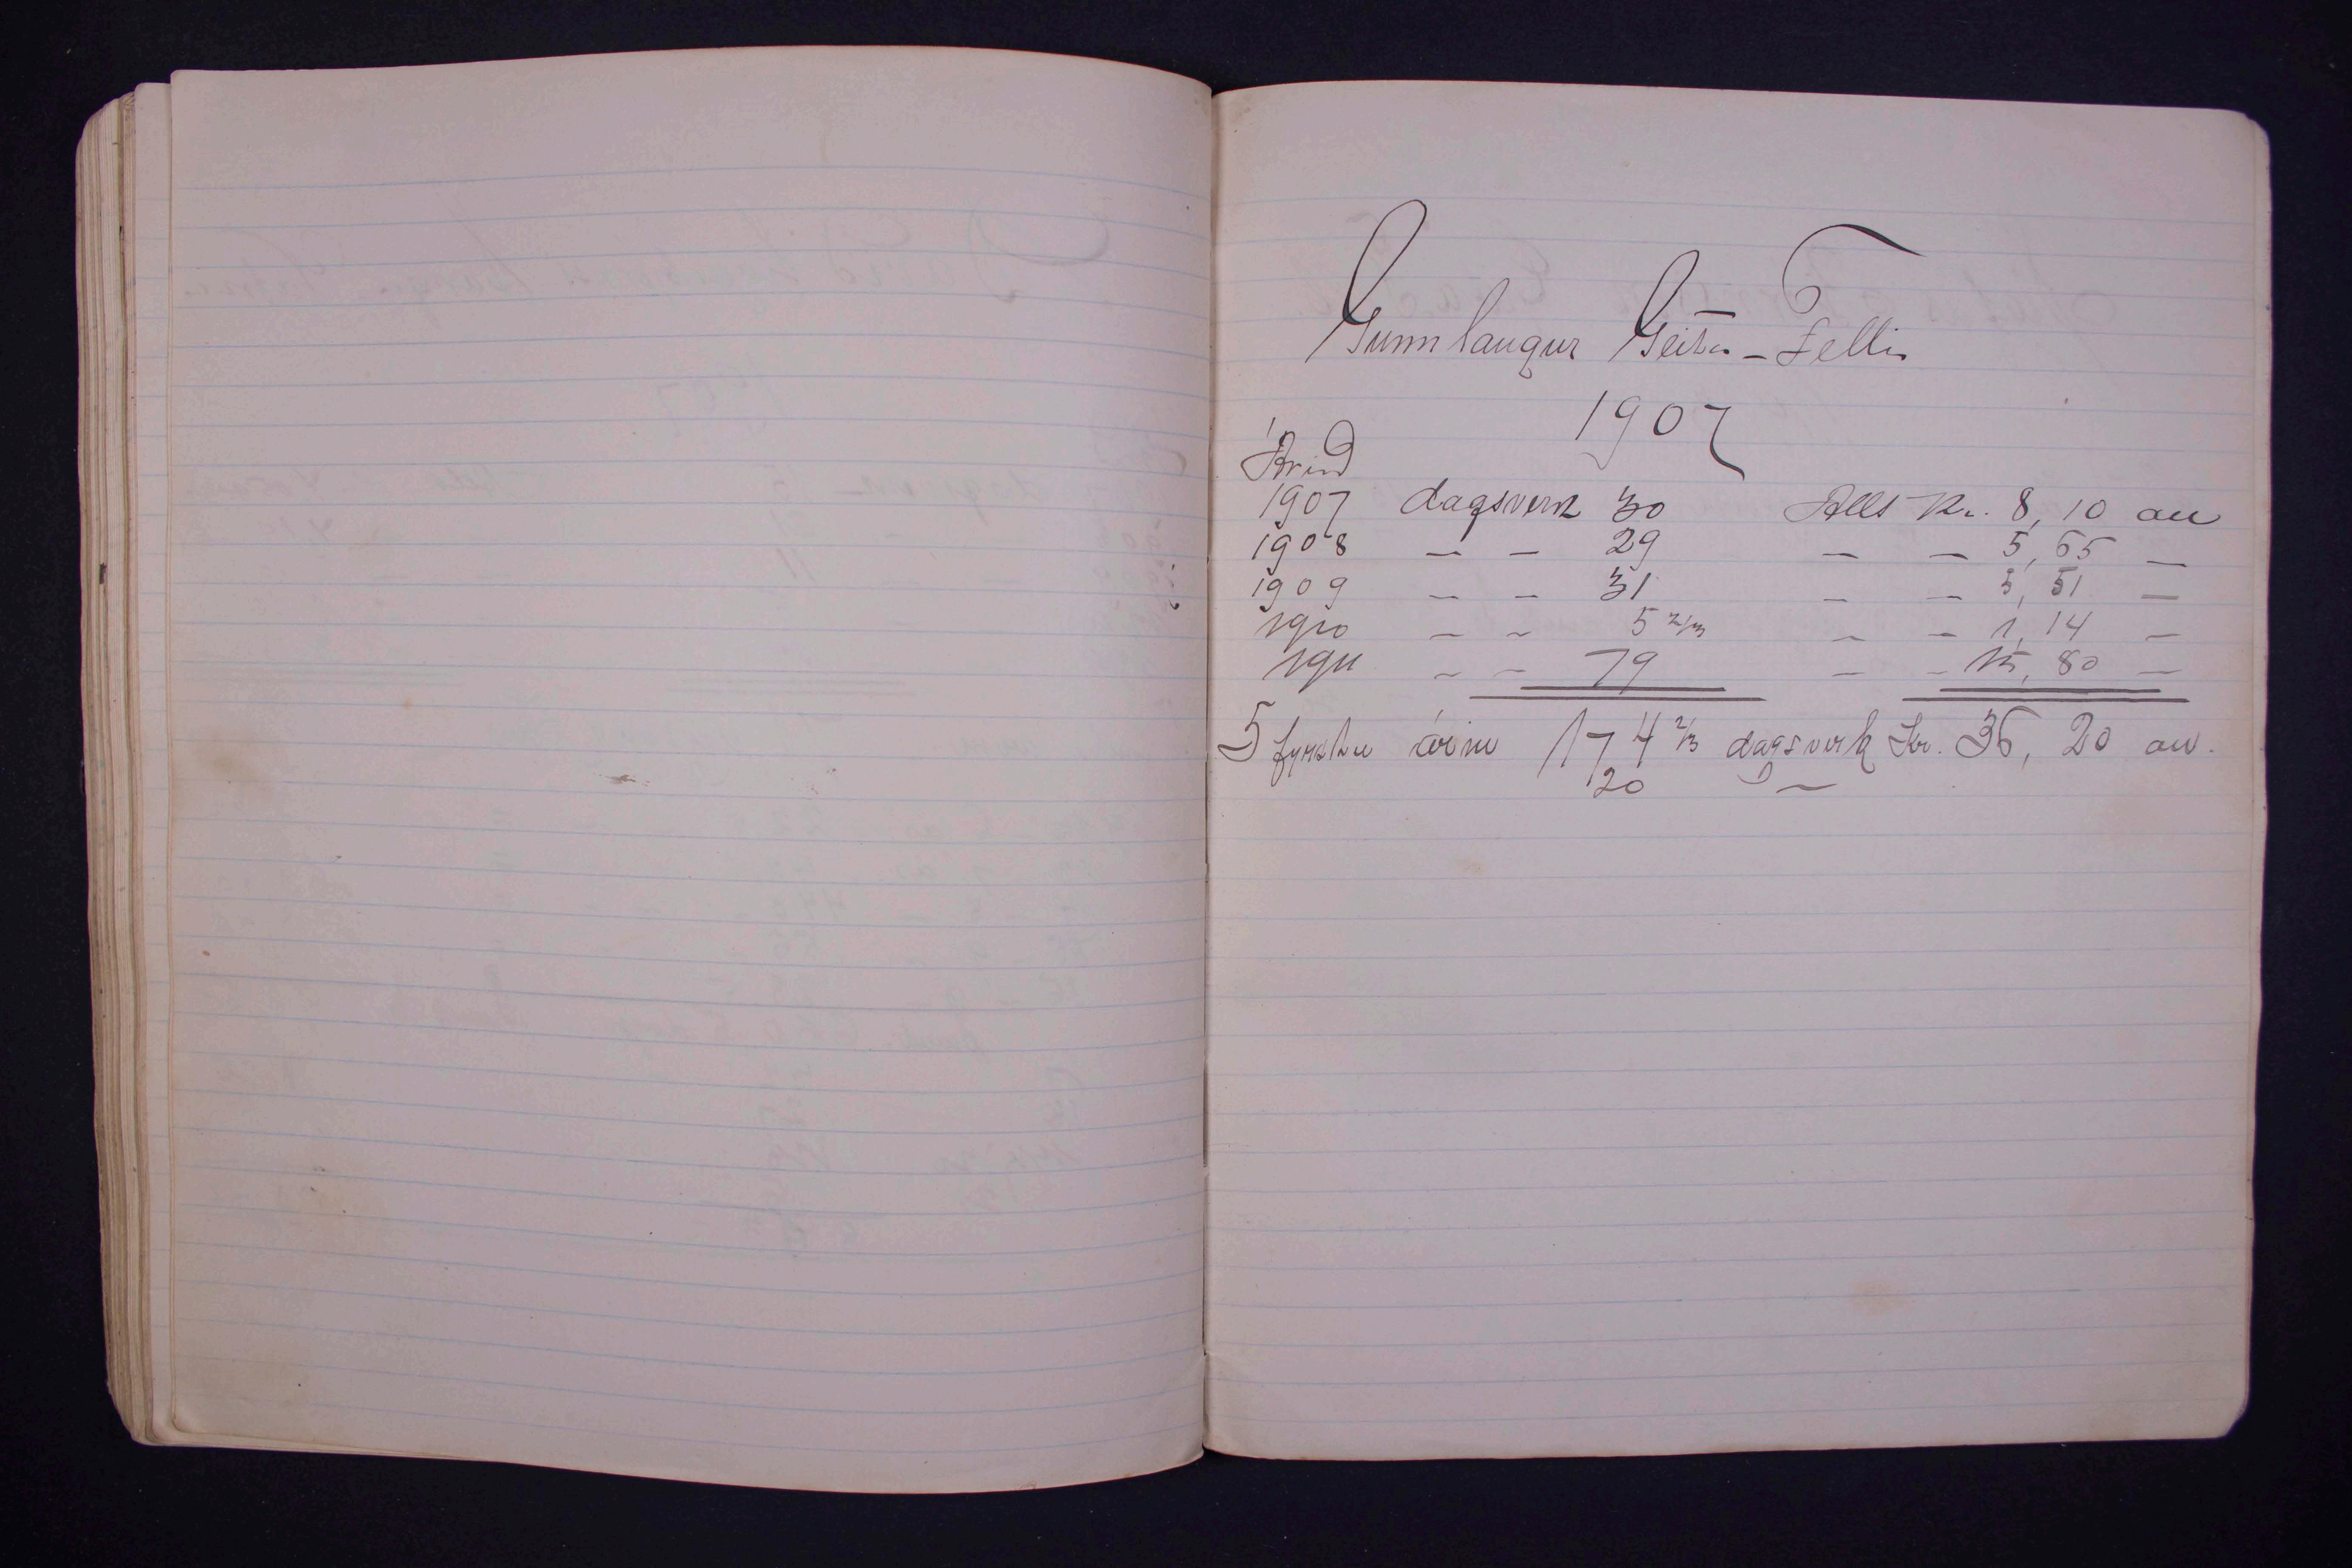 Gunnlaugur Geita-Felli
1907
Árið
1907 dagsverk 30 Alls Kr. 8, 10 au
1908 — — 29 — — 5, 65 —
1909 — — 31 — — 5, 51 —
1910 — — 5 2/3 — — 1, 14 —
1911 — — 79 — — 15, 80 —
5 fyrstu árin 174 2/3 dagsverk Kr. 36, 20 au.
20 D —